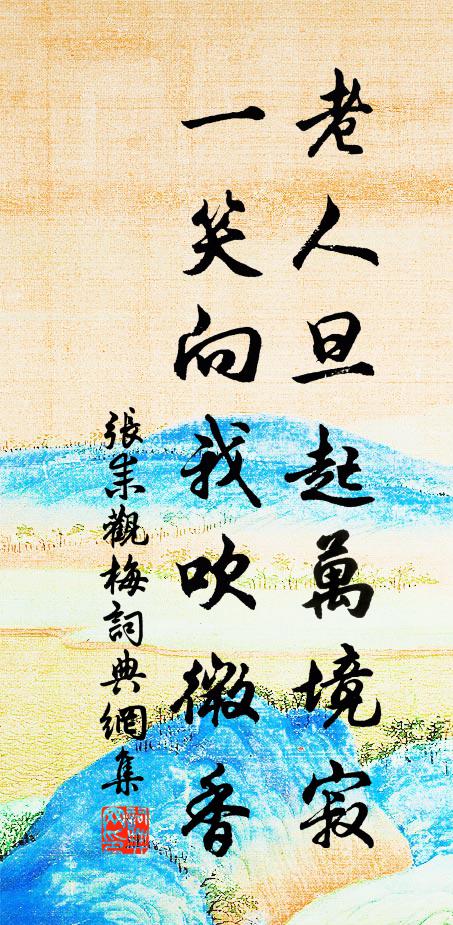 老人旦起萬境寂
一笑向我吹微香
張耒觀梅詞典網集